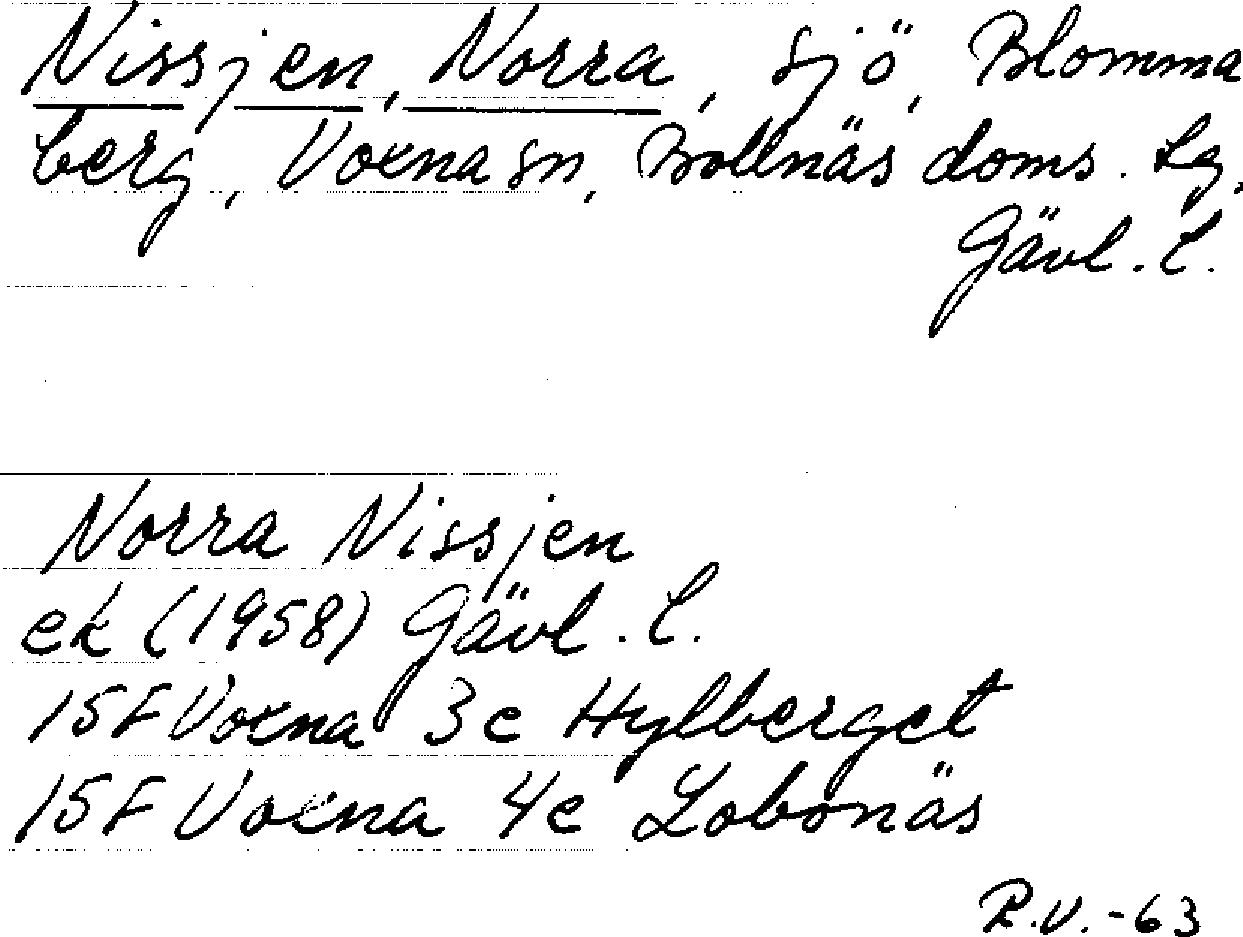 Nissjen, Norra, sjö, Blomma
berg, Voxna sn, Bollnäs doms. lg,
Gävl. l.
Norra Nissjen
ek (1958) Gävl. l.
15F Voxna 3e Hylberget
15F Voxna 4e Lobonäs
R.V.-63